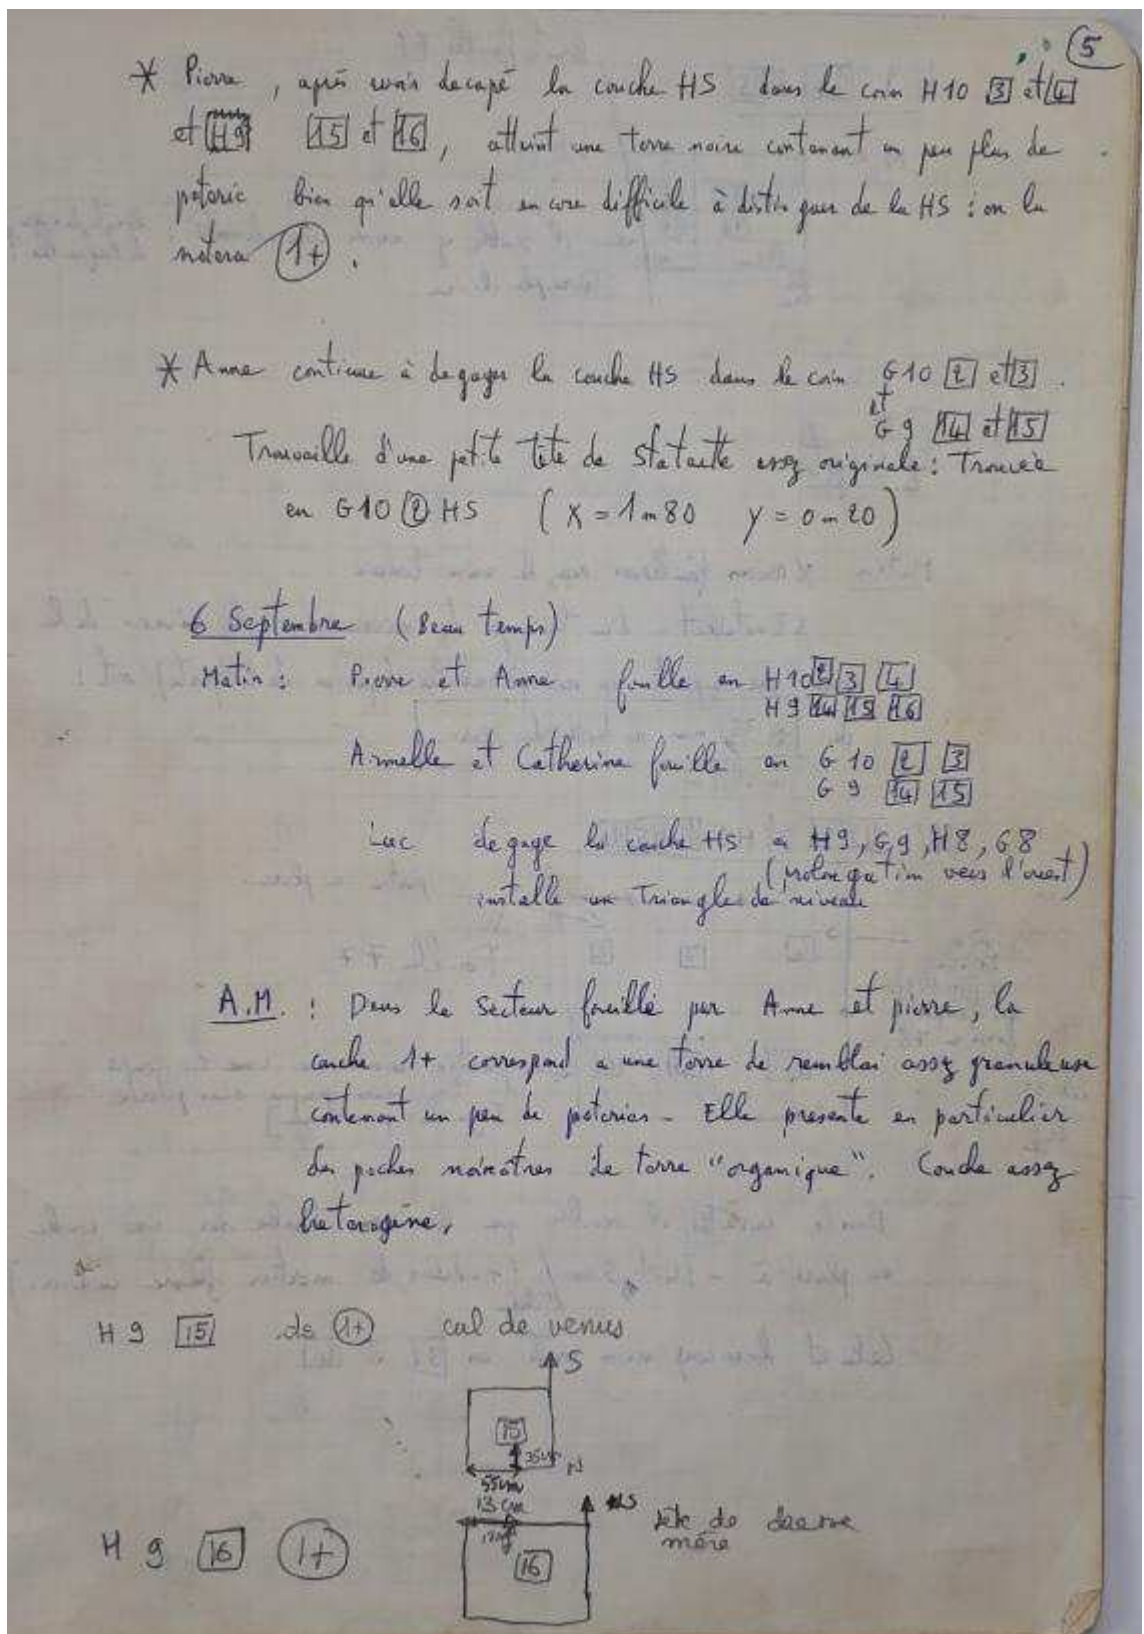 5
* Pierre, après avoir decapé la couche HS dans le coin H10 3 et 4
et H9 15 et 16, atteint une terre noire contenant un peu plus de
poterie bien qu'elle soit encore difficile à distinguer de la HS : on la
notera 1+.
* Anne continue à degager la couche HS dans le coin G10 2 et 3.
et G9 14 et 15
Trouvaille d'une petite tête de statuette assez originale : Trouvée
en G10 2 HS (X = 1m80 Y = 0m20)
6 Septembre (Beau temps)
Matin : Pierre et Anne fouille en H10 2 3 4
H9 14 15 16
Armelle et Catherine fouille en G10 2 3
G9 14 15
Luc degage la couche HS en H9, G9, H8, G8
(prolongation vers l'ouest)
installe un Triangle de niveau
A.M. : Dans le secteur fouillé par Anne et pierre, la
couche 1+ correspond a une terre de remblai assez granuleuse
contenant un peu de poteries - Elle presente en particulier
des poches noirâtres de terre "organique". Couche assez
heterogène,
H9 15 de 1+ cal de venus
S
15
35cm N
55cm
13 cm
S
tête de deesse
mère
H 9 16 1+
16